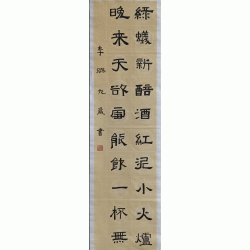 綠蟻新醅酒紅泥小火爐
晚来天欲雪能飲一杯無
李 九歲書